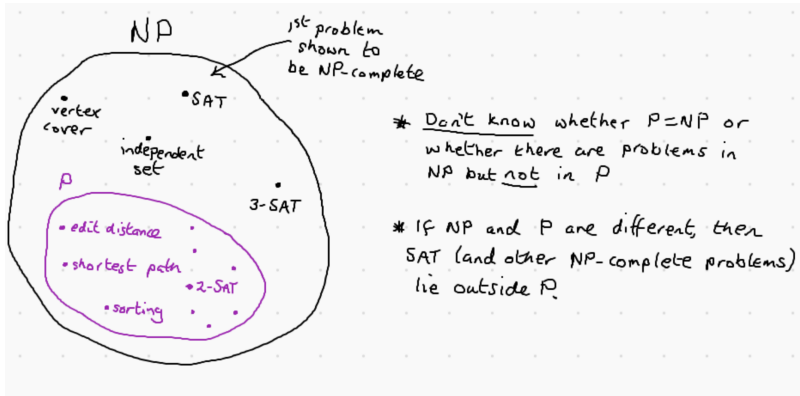 NP
1st problem
shown to
be NP-complete
SAT
vertex
cover
independent
set
3-SAT
P
edit distance
shortest path
2-SAT
sorting
* Don't know whether P=NP or
whether there are problems in
NP but not in P
* If NP and P are different, then
SAT (and other NP-complete problems)
lie outside P.